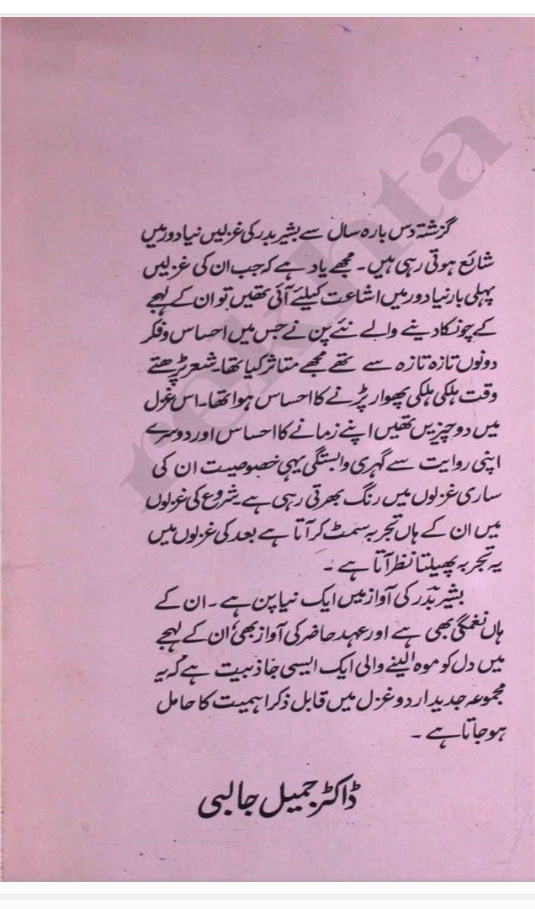 گزشتہ دس بارہ سال سے بشیر بدر کی غزلیں نیا دور میں
شائع ہوتی رہی ہیں۔ مجھے یاد ہے کہ جب ان کی غزلیں
پہلی بار نیا دور میں اشاعت کیلئے آئی تھیں تو ان کے لہجے
کے چونکا دینے والے نئے پن نے جس میں احساس و فکر
دونوں تازہ تازہ سے تھے مجھے متاثر کیا تھا۔ شعر پڑھتے
وقت ہلکی ہلکی پھوار پڑنے کا احساس ہوا تھا۔ اس غزل
میں دو چیزیں تھیں اپنے زمانے کا احساس اور دوسرے
اپنی روایت سے گہری وابستگی یہی خصوصیت ان کی
ساری غزلوں میں رنگ بھرتی رہی ہے شروع کی غزلوں
میں ان کے ہاں تجربہ سمٹ کر آتا ہے بعد کی غزلوں میں
یہ تجربہ پھیلتا نظر آتا ہے ۔
بشیر بدر کی آواز میں ایک نیا پن ہے ۔ ان کے
ہاں نغمگی بھی ہے اور عہد حاضر کی آواز بھی، ان کے لہجے
میں دل کو موہ لینے والی ایک ایسی جاذبیت ہے کہ یہ
مجموعہ جدید اردو غزل میں قابل ذکر اہمیت کا حامل
ہو جاتا ہے ۔
ڈاکٹر جمیل جالبی
rekhta